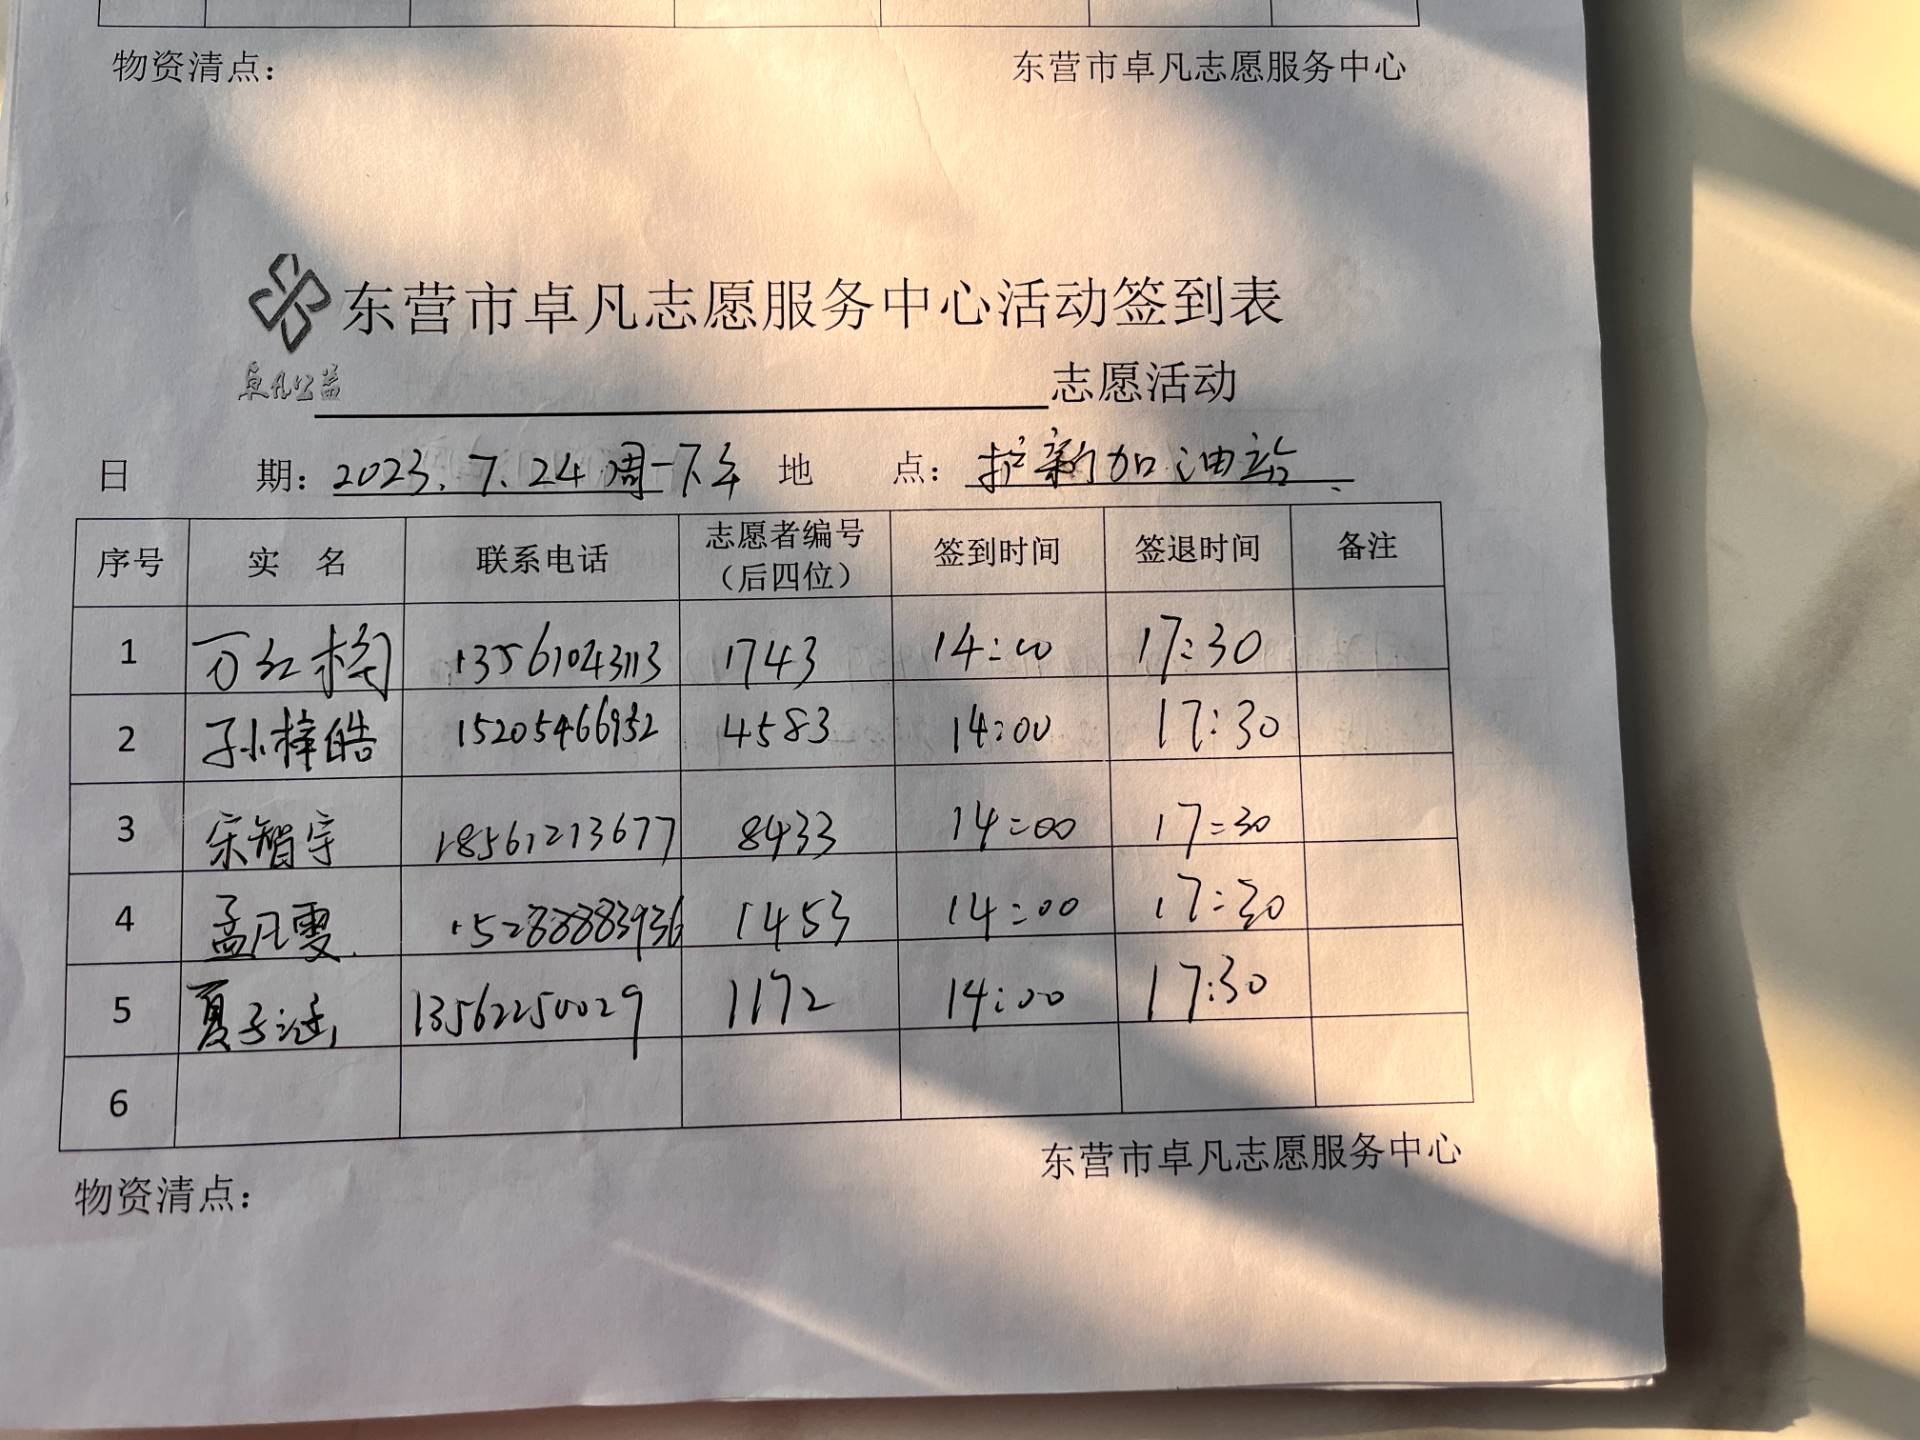 物资清点： 东营市卓凡志愿服务中心
东营市卓凡志愿服务中心活动签到表
卓凡公益
志愿活动
日 期：2023.7.24周一下午 地 点：护新加油站
序号 实 名 联系电话 志愿者编号（后四位） 签到时间 签退时间 备注
1 万红梅 13561043113 1743 14:00 17:30
2 孙梓皓 15205466952 4583 14:00 17:30
3 宋智宇 18561213677 8433 14:00 17:30
4 孟凡雯 15288883936 1453 14:00 17:30
5 夏子涵 13562250029 1172 14:00 17:30
6
东营市卓凡志愿服务中心
物资清点：